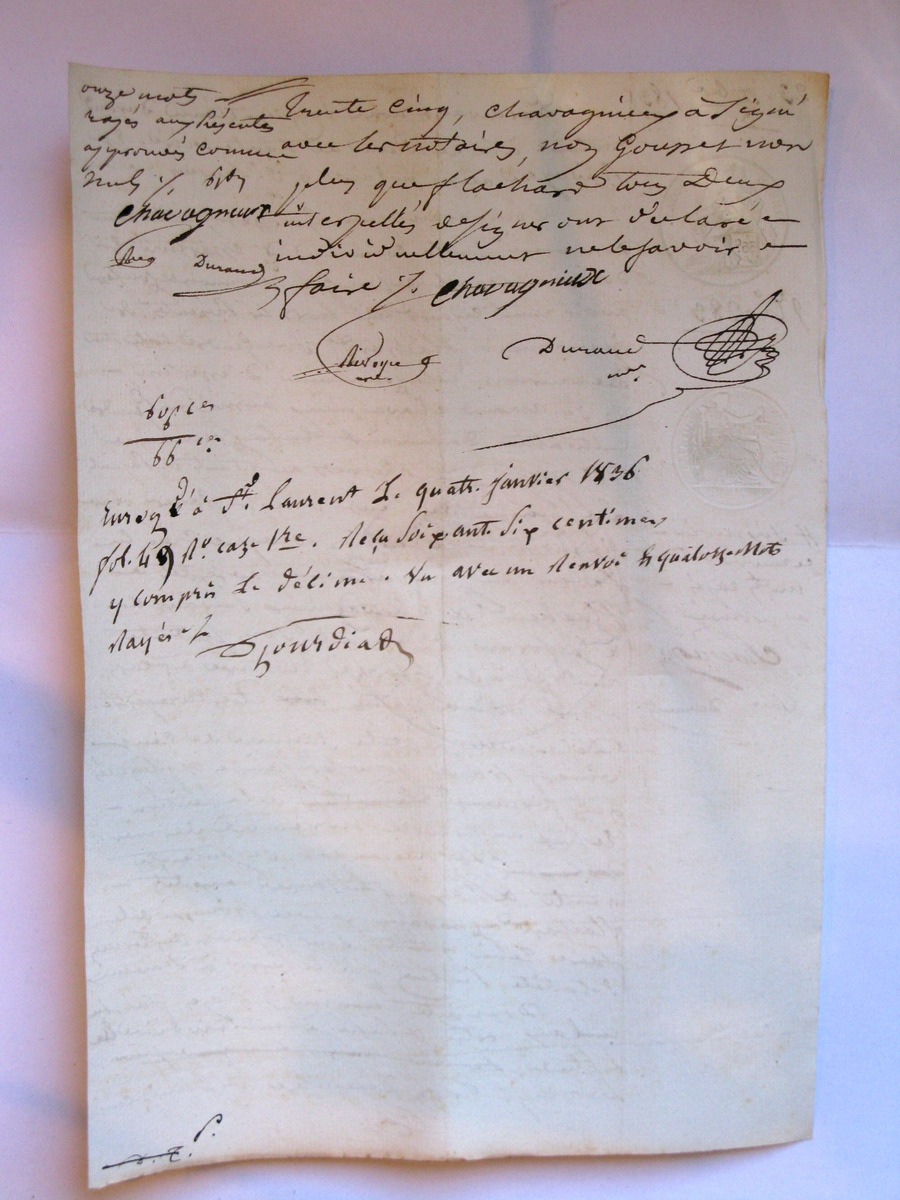 onze mots
rayés aux présentes
approuvés comme
nuls ./.
Chavagnieux
Durand
trente cinq, chavagnieux a signé
avec les notaires, non Goupet non
plus que flachard tous Deux
interpellés de signer ont déclaré
individuellement ne le savoir
faire ./. Chavagnieux
Durand
nre
60 ces
66 ces
Enregé à St. Laurent Le quatre janvier 1836
fol. 49 Ro. case 1re. Reçu Soixante Six centimes
y compris Le décime. Vu avec un Renvoi & quatorze Mots
Rayés ./.
Gourdiat